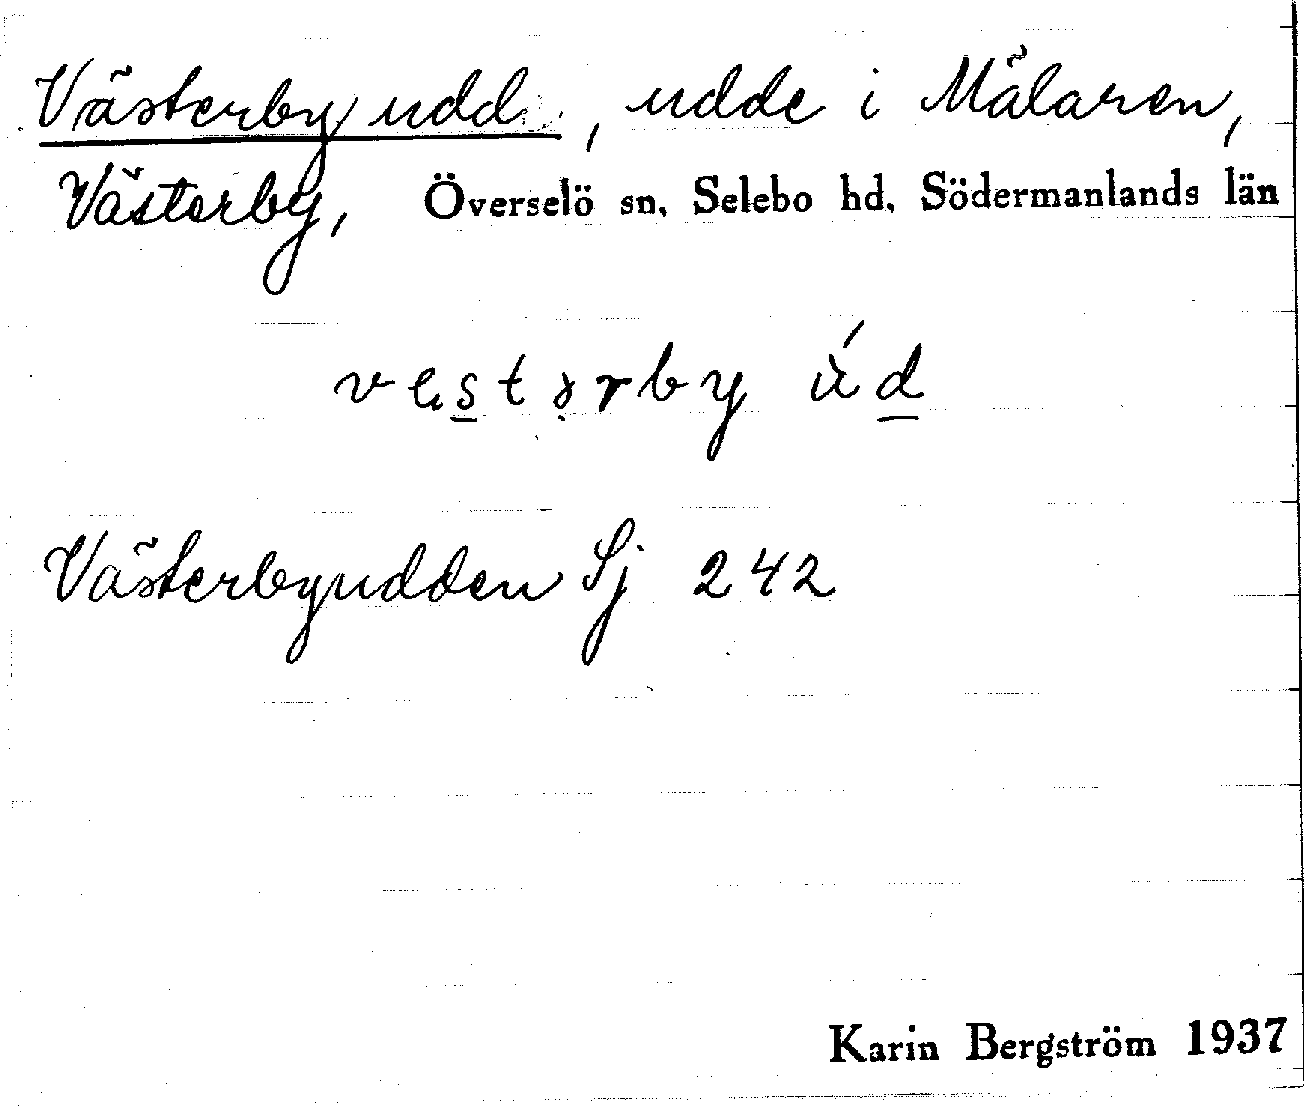 Västerby udd, udde i Mälaren,
Västerby, Överselö sn, Selebo hd, Södermanlands län
Västerbyudden Sj 242
Karin Bergström 1937